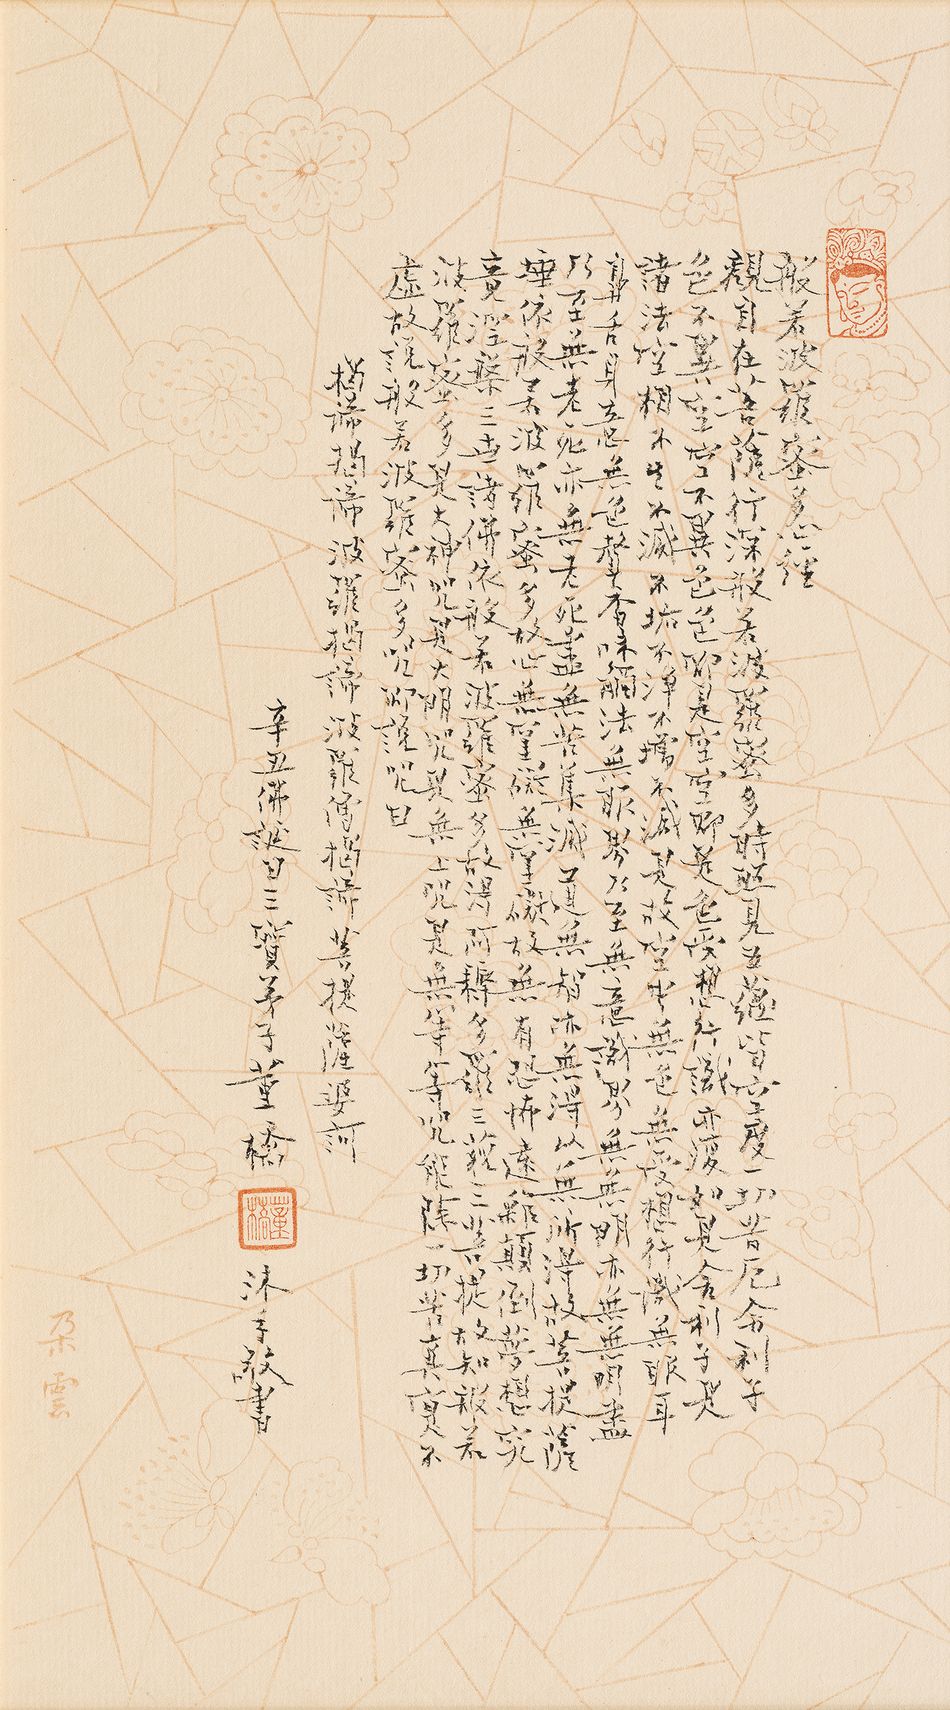 般若波羅蜜多心經
觀自在菩薩行深般若波羅蜜多時照見五蘊皆空度一切苦厄舍利子
色不異空空不異色色即是空空即是色受想行識亦復如是舍利子是
諸法空相不生不滅不垢不淨不增不減是故空中無色無受想行識無眼耳
鼻舌身意無色聲香味觸法無眼界乃至無意識界無無明亦無無明盡
乃至無老死亦無老死盡無苦集滅道無智亦無得以無所得故菩提薩
埵依般若波羅蜜多故心無罣礙無罣礙故無有恐怖遠離顛倒夢想究
竟涅槃三世諸佛依般若波羅蜜多故得阿耨多羅三藐三菩提故知般若
波羅蜜多是大神咒是大明咒是無上咒是無等等咒能除一切苦真實不
虛故說般若波羅蜜多咒即說咒曰
揭諦揭諦波羅揭諦波羅僧揭諦菩提薩婆訶
辛丑佛誕日三寶弟子董橋
董橋
沐手敬書
朵雲